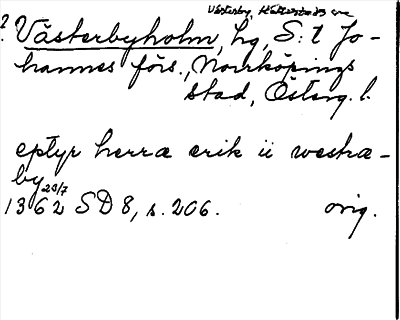 Västerby, Kättestads sn
2. Västerbyholm, hg, S:t Jo-
hannes förs., Norrköpings
stad, Österg. l.
eptyr herra erik ii westra-
by
20/7
1362 SD 8, s. 206. orig.